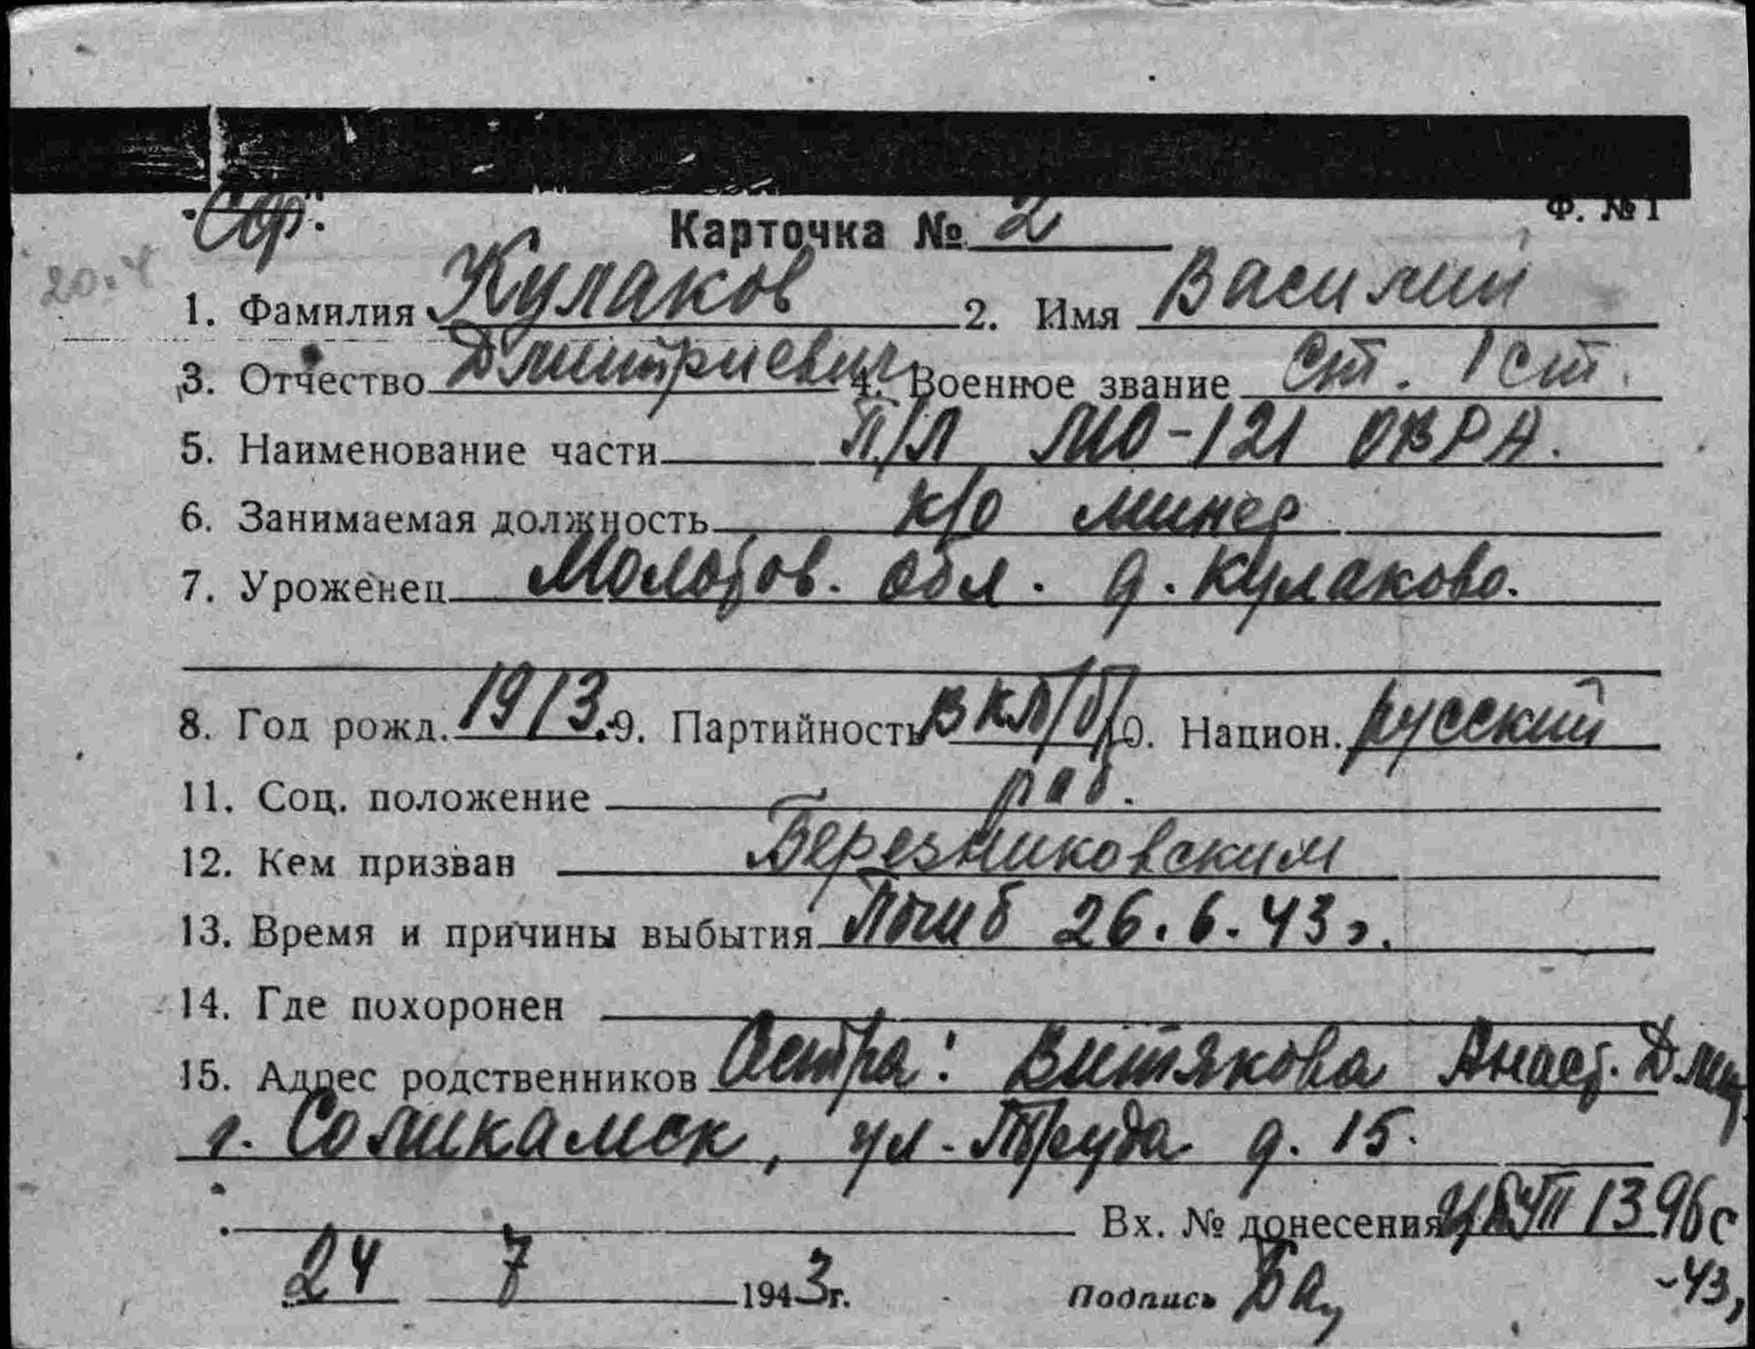 СФ.
Ф. №1
Карточка № 2
20.4
1. Фамилия Кулаков 2. Имя Василий
3. Отчество Дмитриевич 4. Военное звание Ст. 1 ст.
5. Наименование части П/Л МО-121 ОВРА.
6. Занимаемая должность к/о минер
7. Уроженец Молотов. обл. д. Кулаково.
8. Год рожд. 1913. 9. Партийность ВКП/б/ 10. Национ. русский
11. Соц. положение раб.
12. Кем призван Березниковским
13. Время и причины выбытия Погиб 26.6.43 г.
14. Где похоронен
15. Адрес родственников Сестра: Витякова Анаст. Дмит.
г. Соликамск, ул. Труда д. 15.
Вх. № донесения 1396с
-43,
24 7 1943г. Подпись